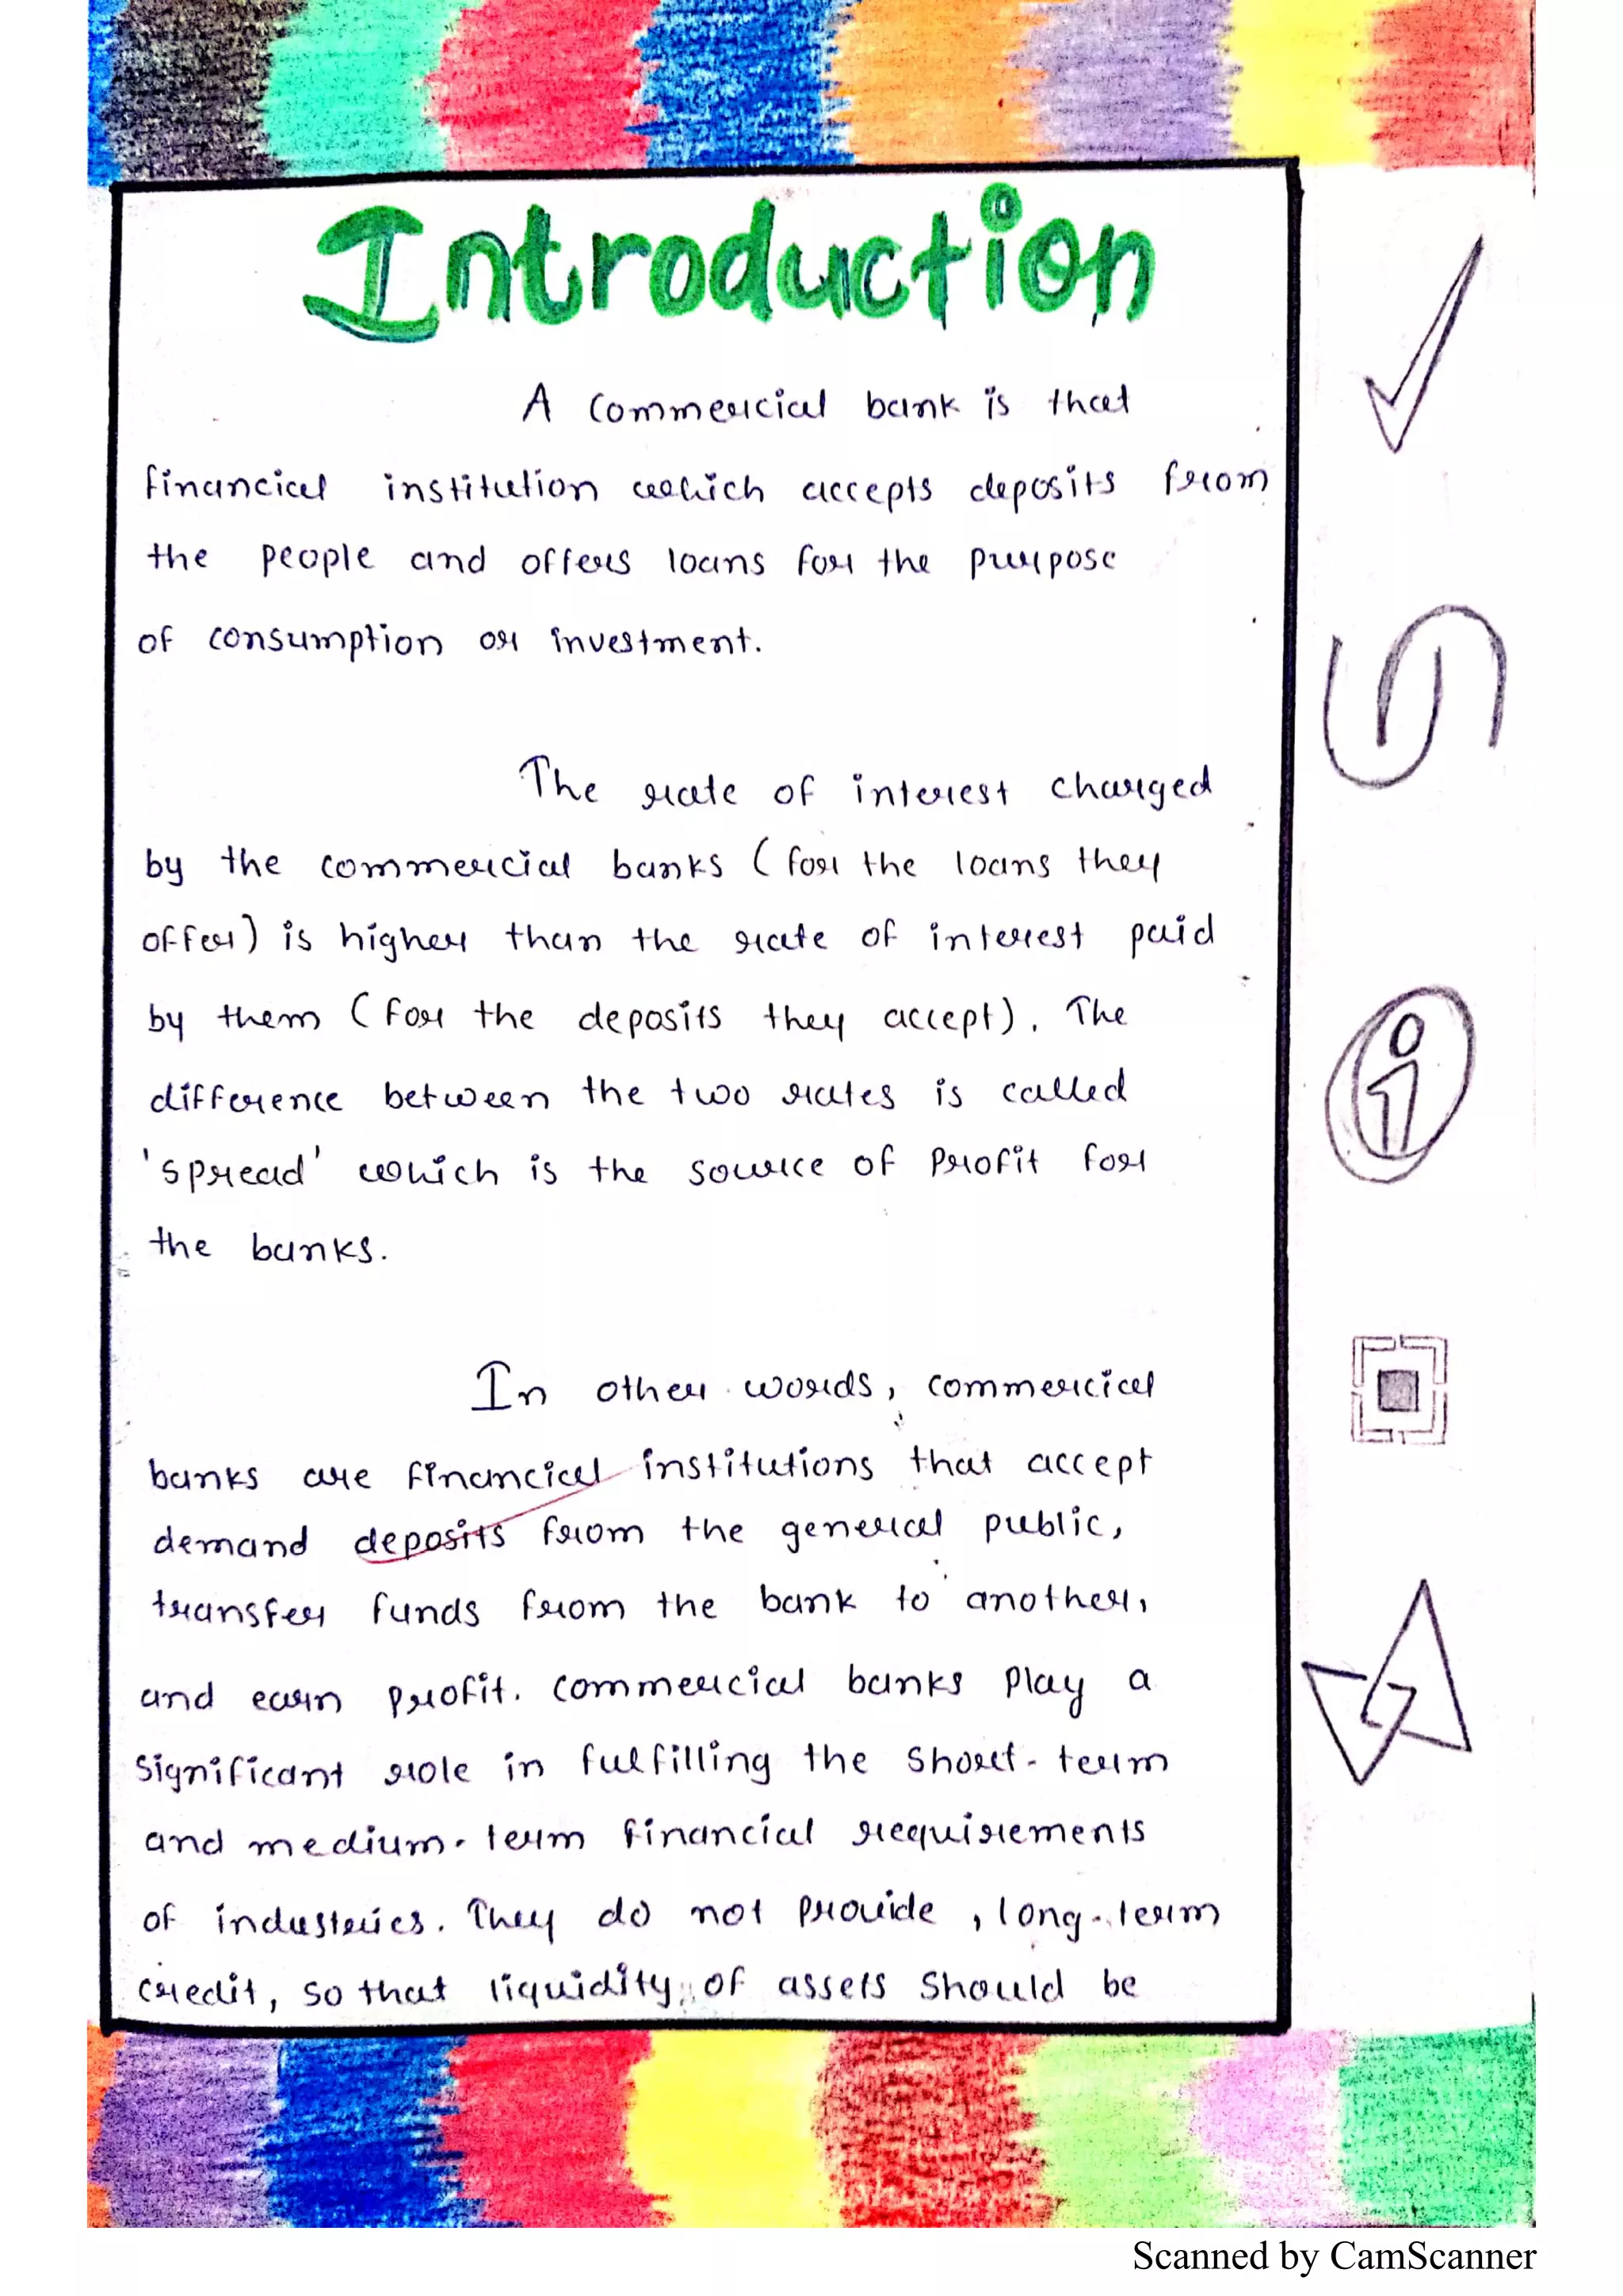 Introduction
A Commercial bank is that
financial institution which accepts deposits from
the people and offers loans for the purpose
of consumption or investment.
The rate of interest charged
by the commercial banks (for the loans they
offer) is higher than the rate of interest paid
by them (for the deposits they accept). The
difference between the two rates is called
'spread' which is the source of Profit for
the banks.
In other words, commercial
banks are financial institutions that accept
demand deposits from the general public,
transfer funds from the bank to another,
and earn profit. Commercial banks Play a
significant role in fulfilling the Short-term
and medium-term financial requirements
of industries. They do not Provide, long-term
credit, so that liquidity of assets Should be
Scanned by CamScanner